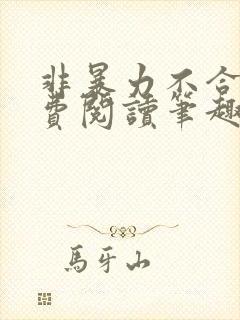 非暴力不合
費閱讀筆趣
馬牙山